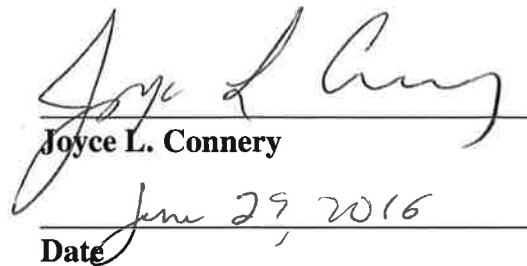 Joyce L Connery
Joyce L. Connery
June 29, 2016
Date